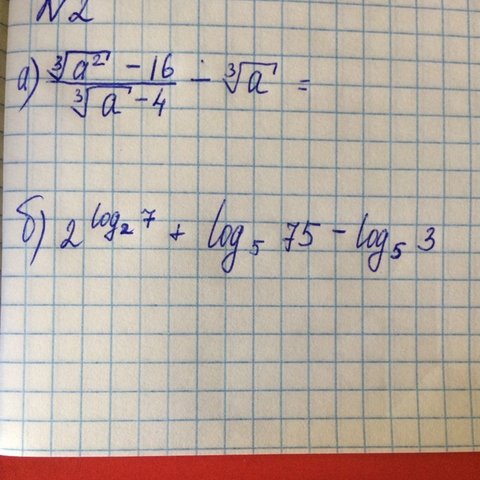 N2
а) (∛a² - 16)/(∛a - 4) - ∛a =
б) 2^(log₂ 7) + log₅ 75 - log₅ 3